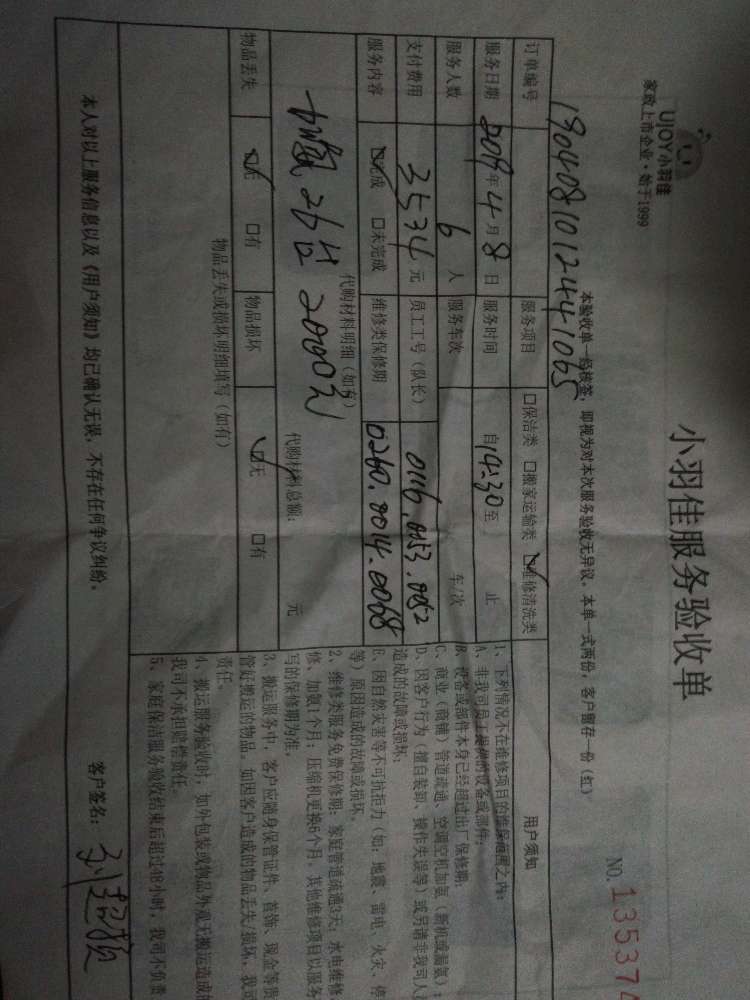 UJOY小羽佳
家政上市企业·始于1999
小羽佳服务验收单
NO.135374
本验收单一经核签，即视为对本次服务验收无异议。本单一式两份，客户留存一份（红）
订单编号 190408101244 1065
服务项目 □保洁类 □搬家运输类 ☑维修清洗类
服务日期 2019年4月8日 服务时间 自14:30至 止
服务人数 6人 服务车次 车/次
支付费用 3534元 员工工号（队长） 0116.0053.0052
服务内容 ☑完成 □未完成 维修类保修期 0260.0014.0068
代购材料明细（如有）
加氨26台 2000元
代购材料总额： 元
物品丢失 ☑无 □有 物品损坏 ☑无 □有
物品丢失或损坏明细填写（如有）
用户须知
1、下列情况不在维修项目的维保范围之内：
A、非我司员工提供的设备或部件；
B、设备或部件本身已经超过出厂保修期；
C、商业（商铺）管道疏通、空调空机加氨（新机或漏氨）；
D、因客户行为（擅自装卸、操作失误等）或另请非我司人
造成的故障或损坏；
E、因自然灾害等不可抗拒力（如：地震、雷电、火灾、停
等）原因造成的故障或损坏。
2、维修类服务免费保修期：家庭管道疏通3天；水电维修
修、加氨1个月；压缩机更换6个月。其他维修项目以服务
写的保修期为准。
3、搬运服务中，客户应随身保管证件、首饰、现金等贵
管好搬运的物品。如因客户造成的物品丢失/损坏，我司
责任。
4、搬运服务验收时，如外包装或物品外观无搬运造成
我司不承担赔偿责任。
5、家庭保洁服务验收结束后超过48小时，我司不负责
本人对以上服务信息以及《用户须知》均已确认无误，不存在任何争议纠纷。
客户签名：